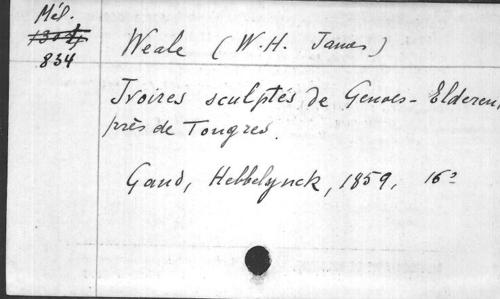 Mél.
834
Weale (W.H. James)
Ivoires sculptés de Genoes-Elderen,
près de Tongres.
Gand, Hebbelynck, 1859, 16°